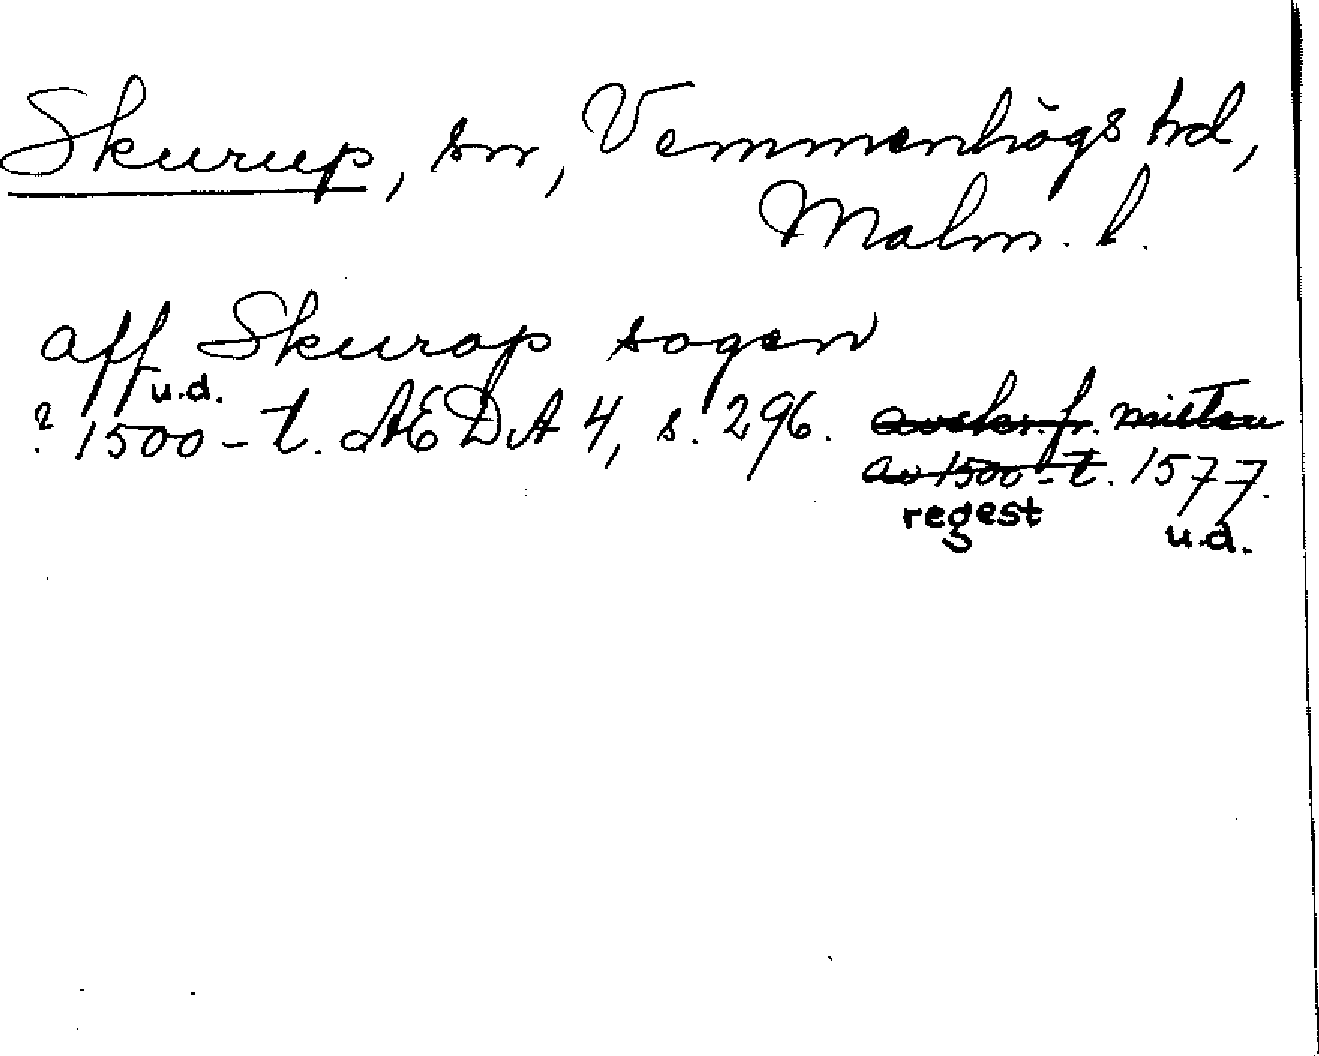 Skurup, sn, Vemmenhögs hd,
Malm. l.
aff Skurop sogen
u.d.
? 1500-t. AEDA 4, s. 296. avskr. fr. mitten
av 1500-t. 1577.
regest u.d.